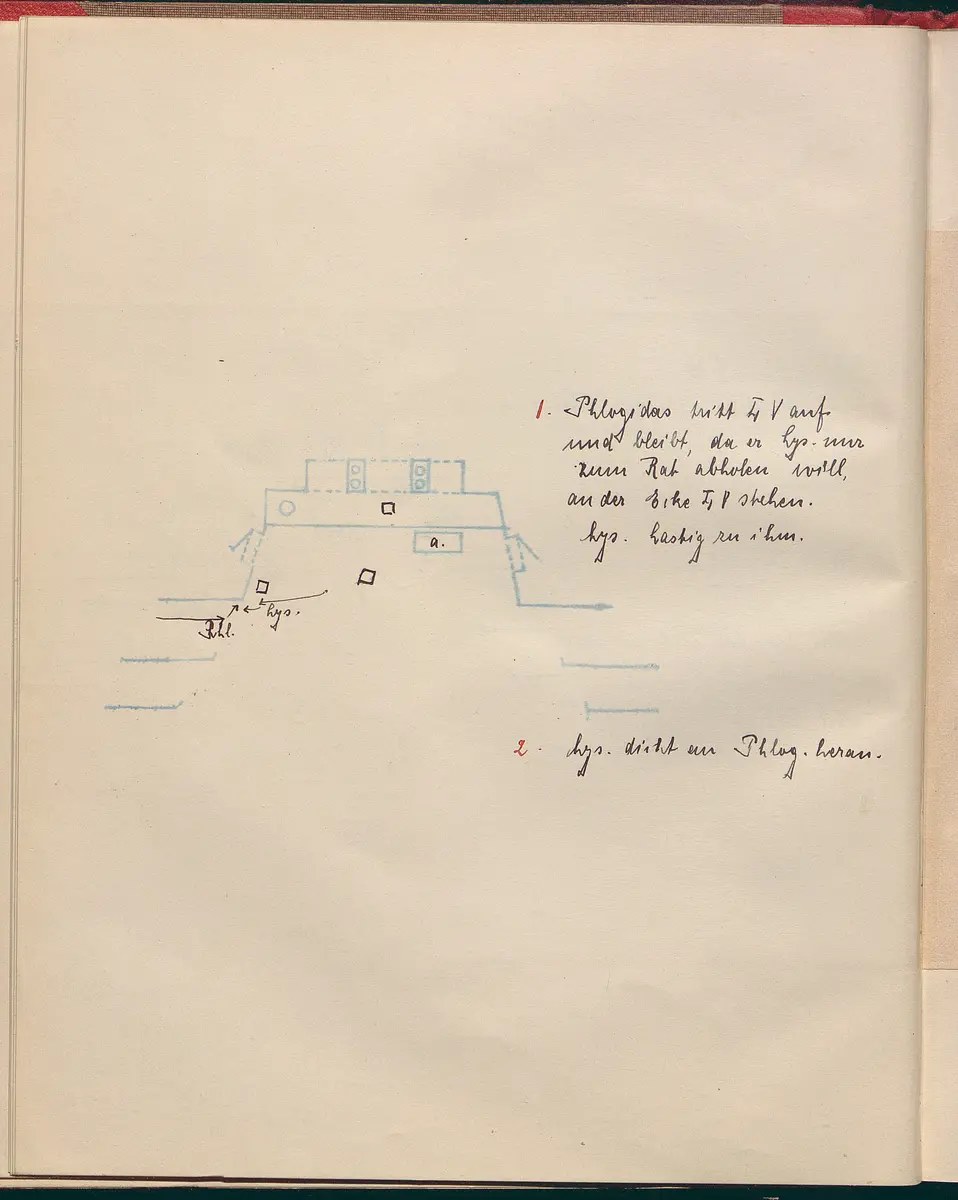 1. Phlogidas tritt I, V auf
und bleibt, da er Lys. nur
zum Rat abholen will,
an der Ecke I, V stehen.
Lys. hastig zu ihm.
a.
Lys.
Phl.
2. Lys. dicht an Phlog. heran.